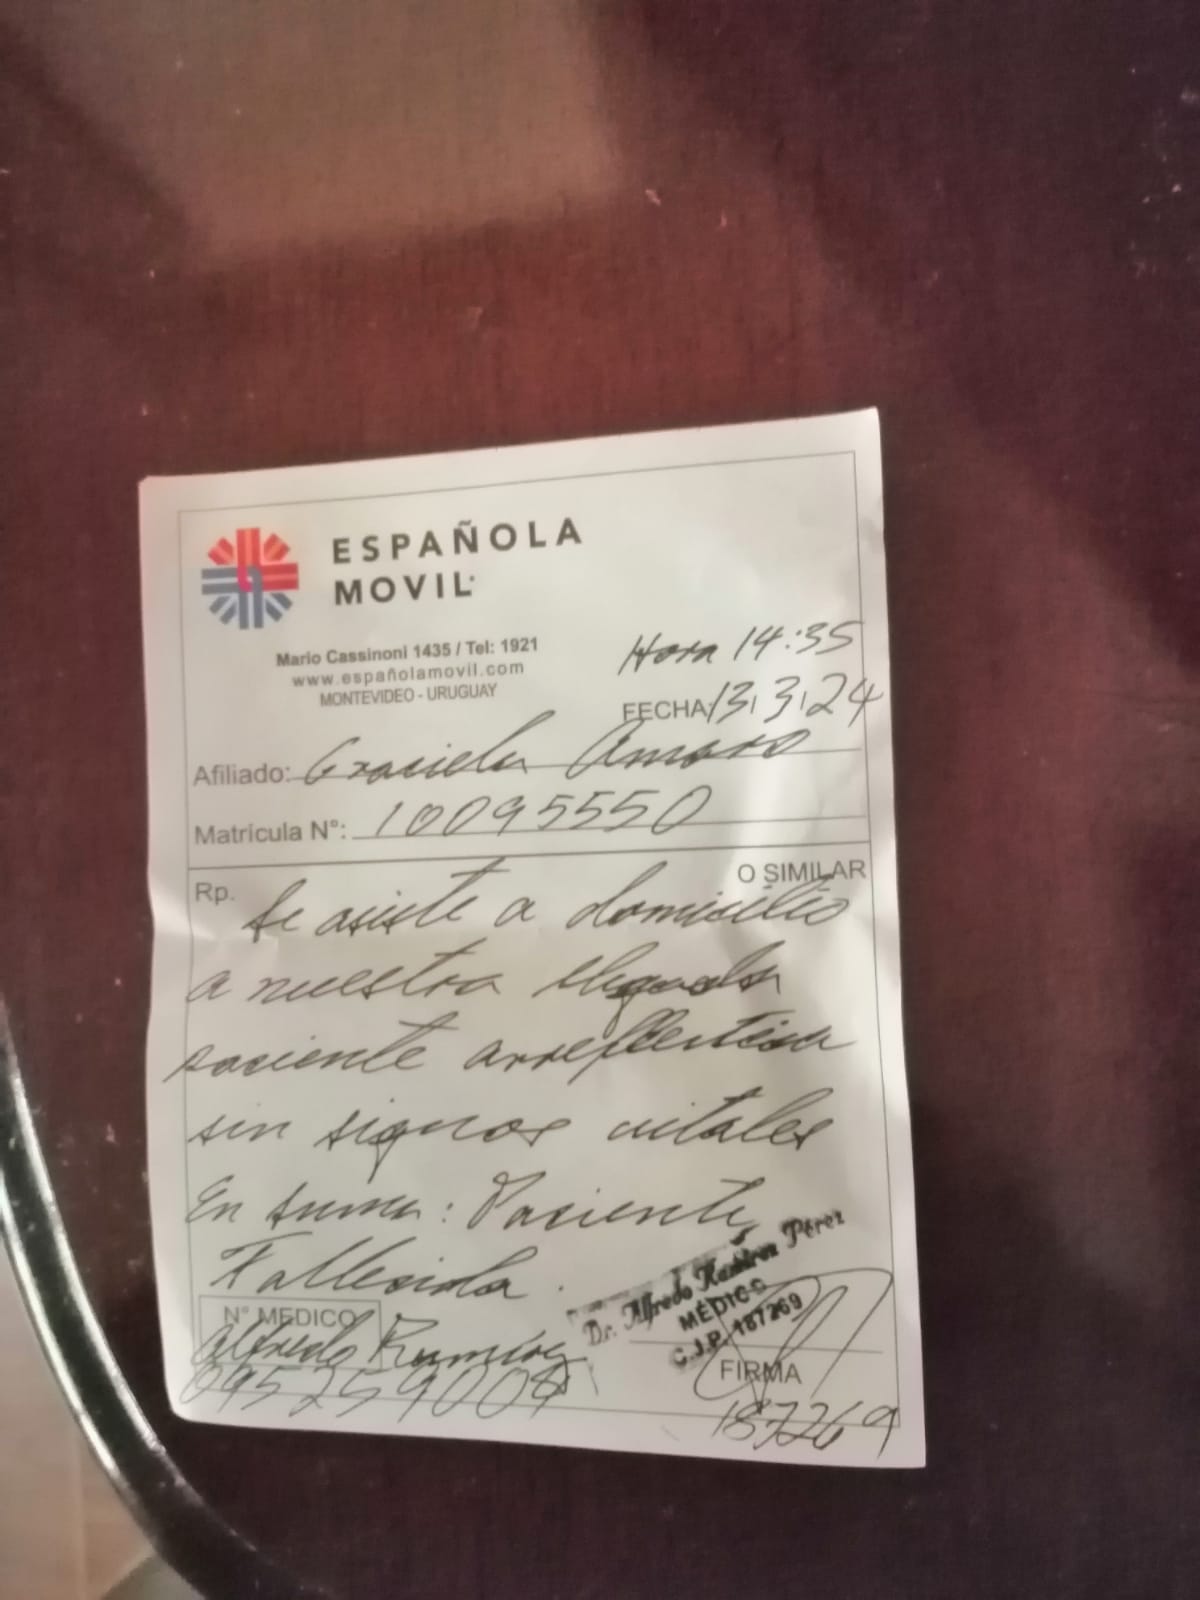 ESPAÑOLA
MOVIL
Mario Cassinoni 1435 / Tel: 1921
www.españolamovil.com
MONTEVIDEO - URUGUAY
Hora 14:35
FECHA: 13 3 24
Afiliado: Graciela Amaro
Matrícula N°: 10095550
Rp.
O SIMILAR
Se asiste a domicilio
a nuestra llegada
paciente arreflectica
sin signos vitales
En suma: Paciente
Fallecida.
N° MEDICO
Alfredo Ramírez
095259004
Dr. Alfredo Ramírez Pérez
MÉDICO
C.J.P. 187269
FIRMA
187269